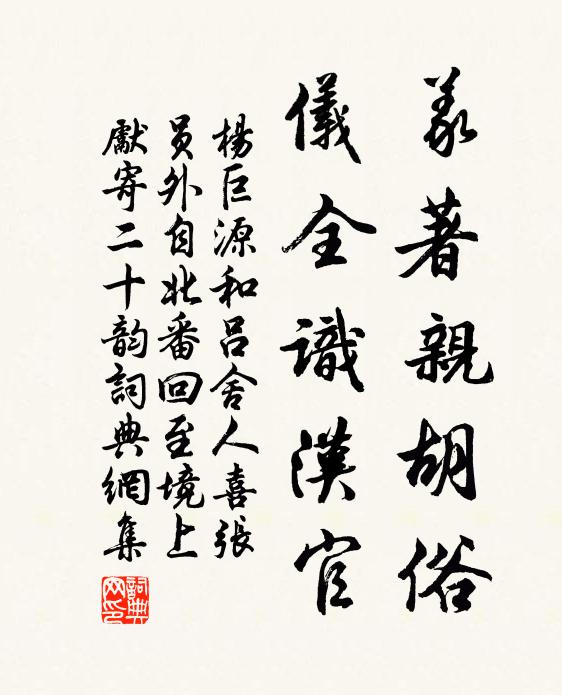 義著親胡俗
儀全識漢官
楊巨源和呂舍人喜張
員外自北番回至境上
獻寄二十韵詞典網集
詞典
网印